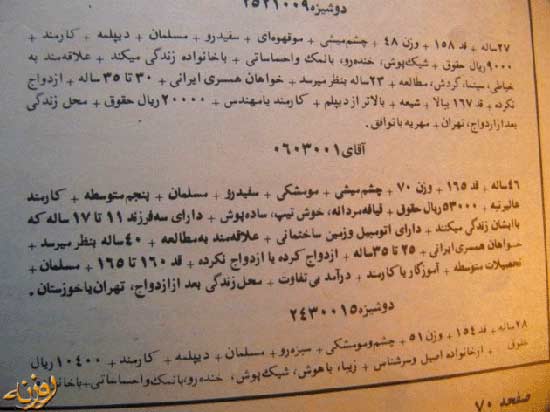 دوشیزه ۲۵۲۱۰۰۹
۲۷ساله + قد ۱۵۸ + وزن ۴۸ + چشم‌میشی + موقهوه‌ای + سفیدرو + مسلمان + دیپلمه + کارمند +
۹۰۰۰ریال حقوق + شیک‌پوش، خنده‌رو، بانمک واحساساتی + باخانواده زندگی میکند + علاقه‌مند به
خیاطی، سینما، گردش، مطالعه + ۲۳ساله بنظر میرسد + خواهان همسری ایرانی + ۳۰ تا ۳۵ ساله + ازدواج
نکرده + قد ۱۶۷ ببالا + شیعه + بالاتر از دیپلم + کارمند یا مهندس + ۲۰۰۰۰ ریال حقوق + محل زندگی
بعد از ازدواج، تهران + مهریه با توافق.
آقای ۰۶۰۳۰۰۱
۴۶ساله + قد ۱۶۵ + وزن ۷۰ + چشم‌میشی + مومشکی + سفیدرو + مسلمان + پنجم متوسطه + کارمند
عالیرتبه + ۵۳۰۰۰ریال حقوق + قیافه مردانه، خوش تیپ، ساده‌پوش + دارای سه‌فرزند ۱۱ تا ۱۷ ساله که
با ایشان زندگی میکنند + دارای اتومبیل وزمین ساختمانی + علاقمند به مطالعه + ۴۰ساله بنظر میرسد +
خواهان همسری ایرانی + ۲۵ تا ۳۵ساله + ازدواج کرده یا ازدواج نکرده + قد ۱۶۰ تا ۱۶۵ + مسلمان +
تحصیلات متوسطه + آموزگار یا کارمند + درآمد بی‌تفاوت + محل زندگی بعد از ازدواج، تهران یا خوزستان.
دوشیزه ۲۴۳۰۰۱۵
۲۸ساله + قد ۱۵۴ + وزن ۵۱ + چشم‌ومومشکی + سبزه‌رو + مسلمان + دیپلمه + کارمند + ۱۰۴۰۰ ریال
حقوق + ازخانواده اصیل وسرشناس + زیبا، باهوش، شیک‌پوش، خنده‌رو، بانمک واحساساتی + باخانواده
صفحه ۷۰
روزنه